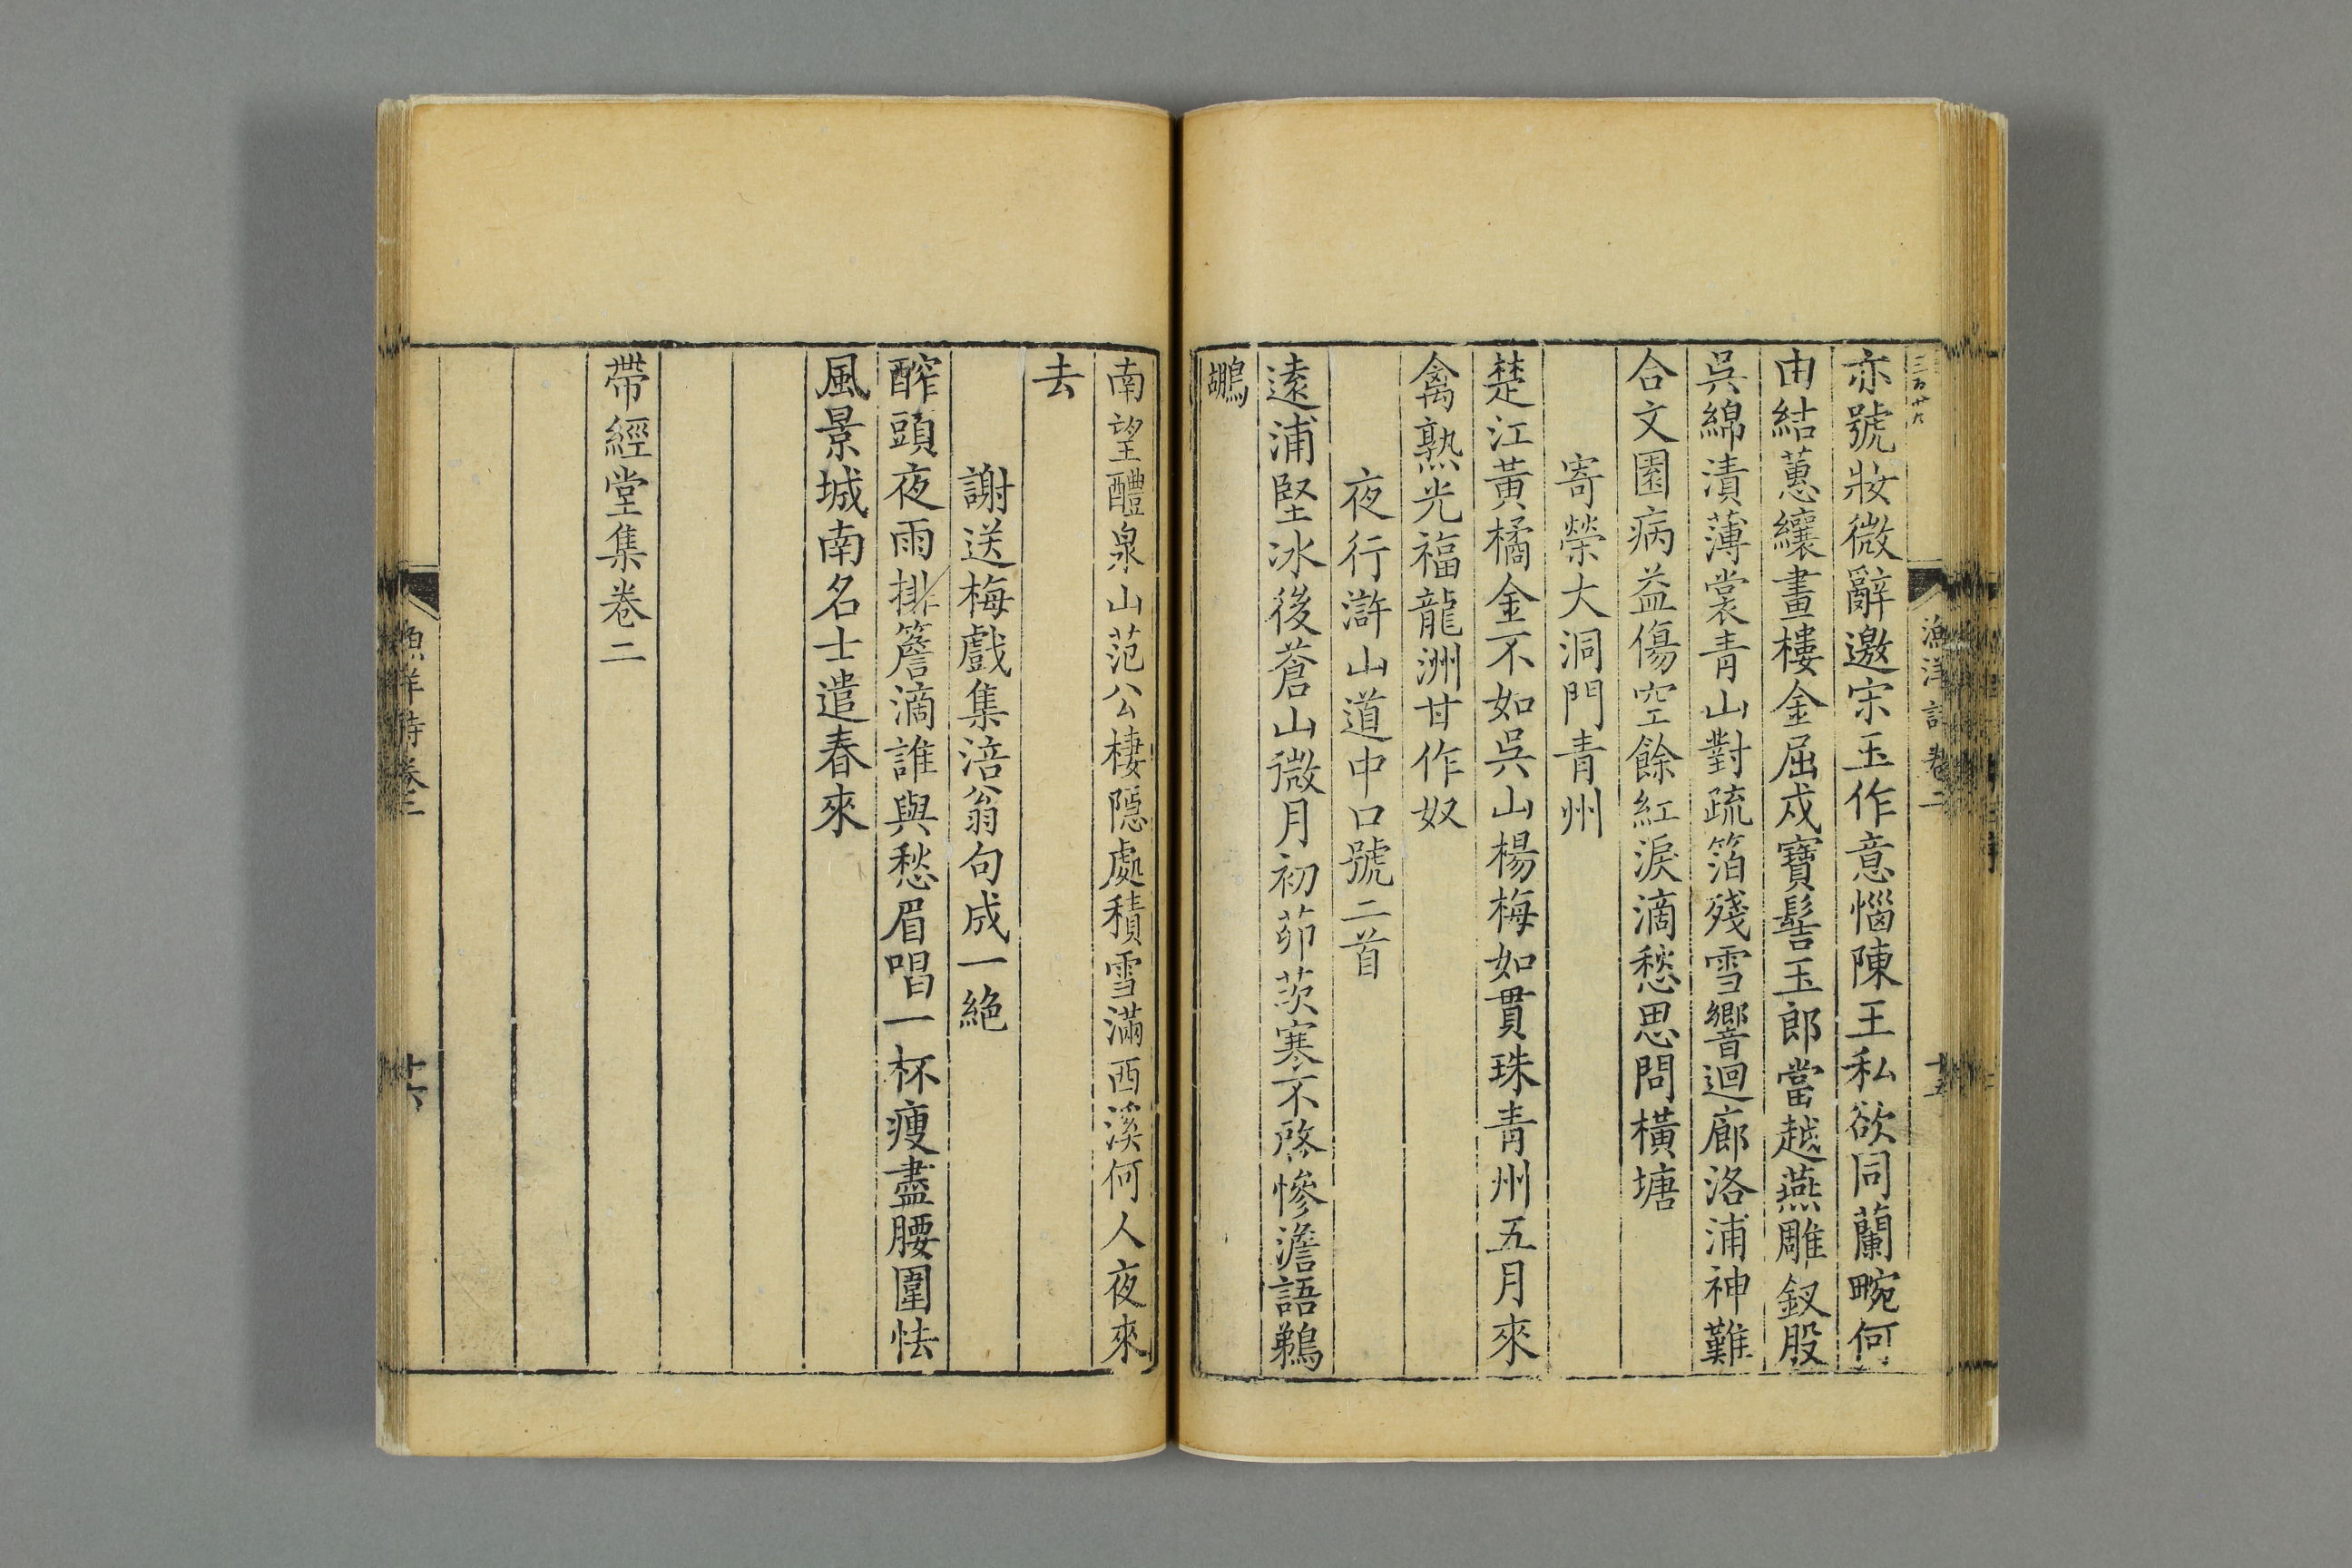 亦號妝微辭邀宋玉作意惱陳王私欲同蘭畹何
由結蕙纕畫樓金屈戍寶髻玉郎當越燕雕釵股
吳綿漬薄裳青山對疏箔殘雪響迴廊洛浦神難
合文園病益傷空餘紅淚滴愁思問橫塘
寄榮大洞門青州
楚江黃橘金不如吳山楊梅如貫珠青州五月來
禽熟光福龍洲甘作奴
夜行滸山道中口號二首
遠浦堅冰後蒼山微月初茆茨寒不啓慘澹語鵜
鶘
漁洋詩卷二
十五
南望醴泉山范公棲隱處積雪滿西溪何人夜來
去
謝送梅戲集涪翁句成一絶
醡頭夜雨排簷滴誰與愁眉唱一杯瘦盡腰圍怯
風景城南名士遣春來
帶經堂集卷二
漁洋詩卷二
十六